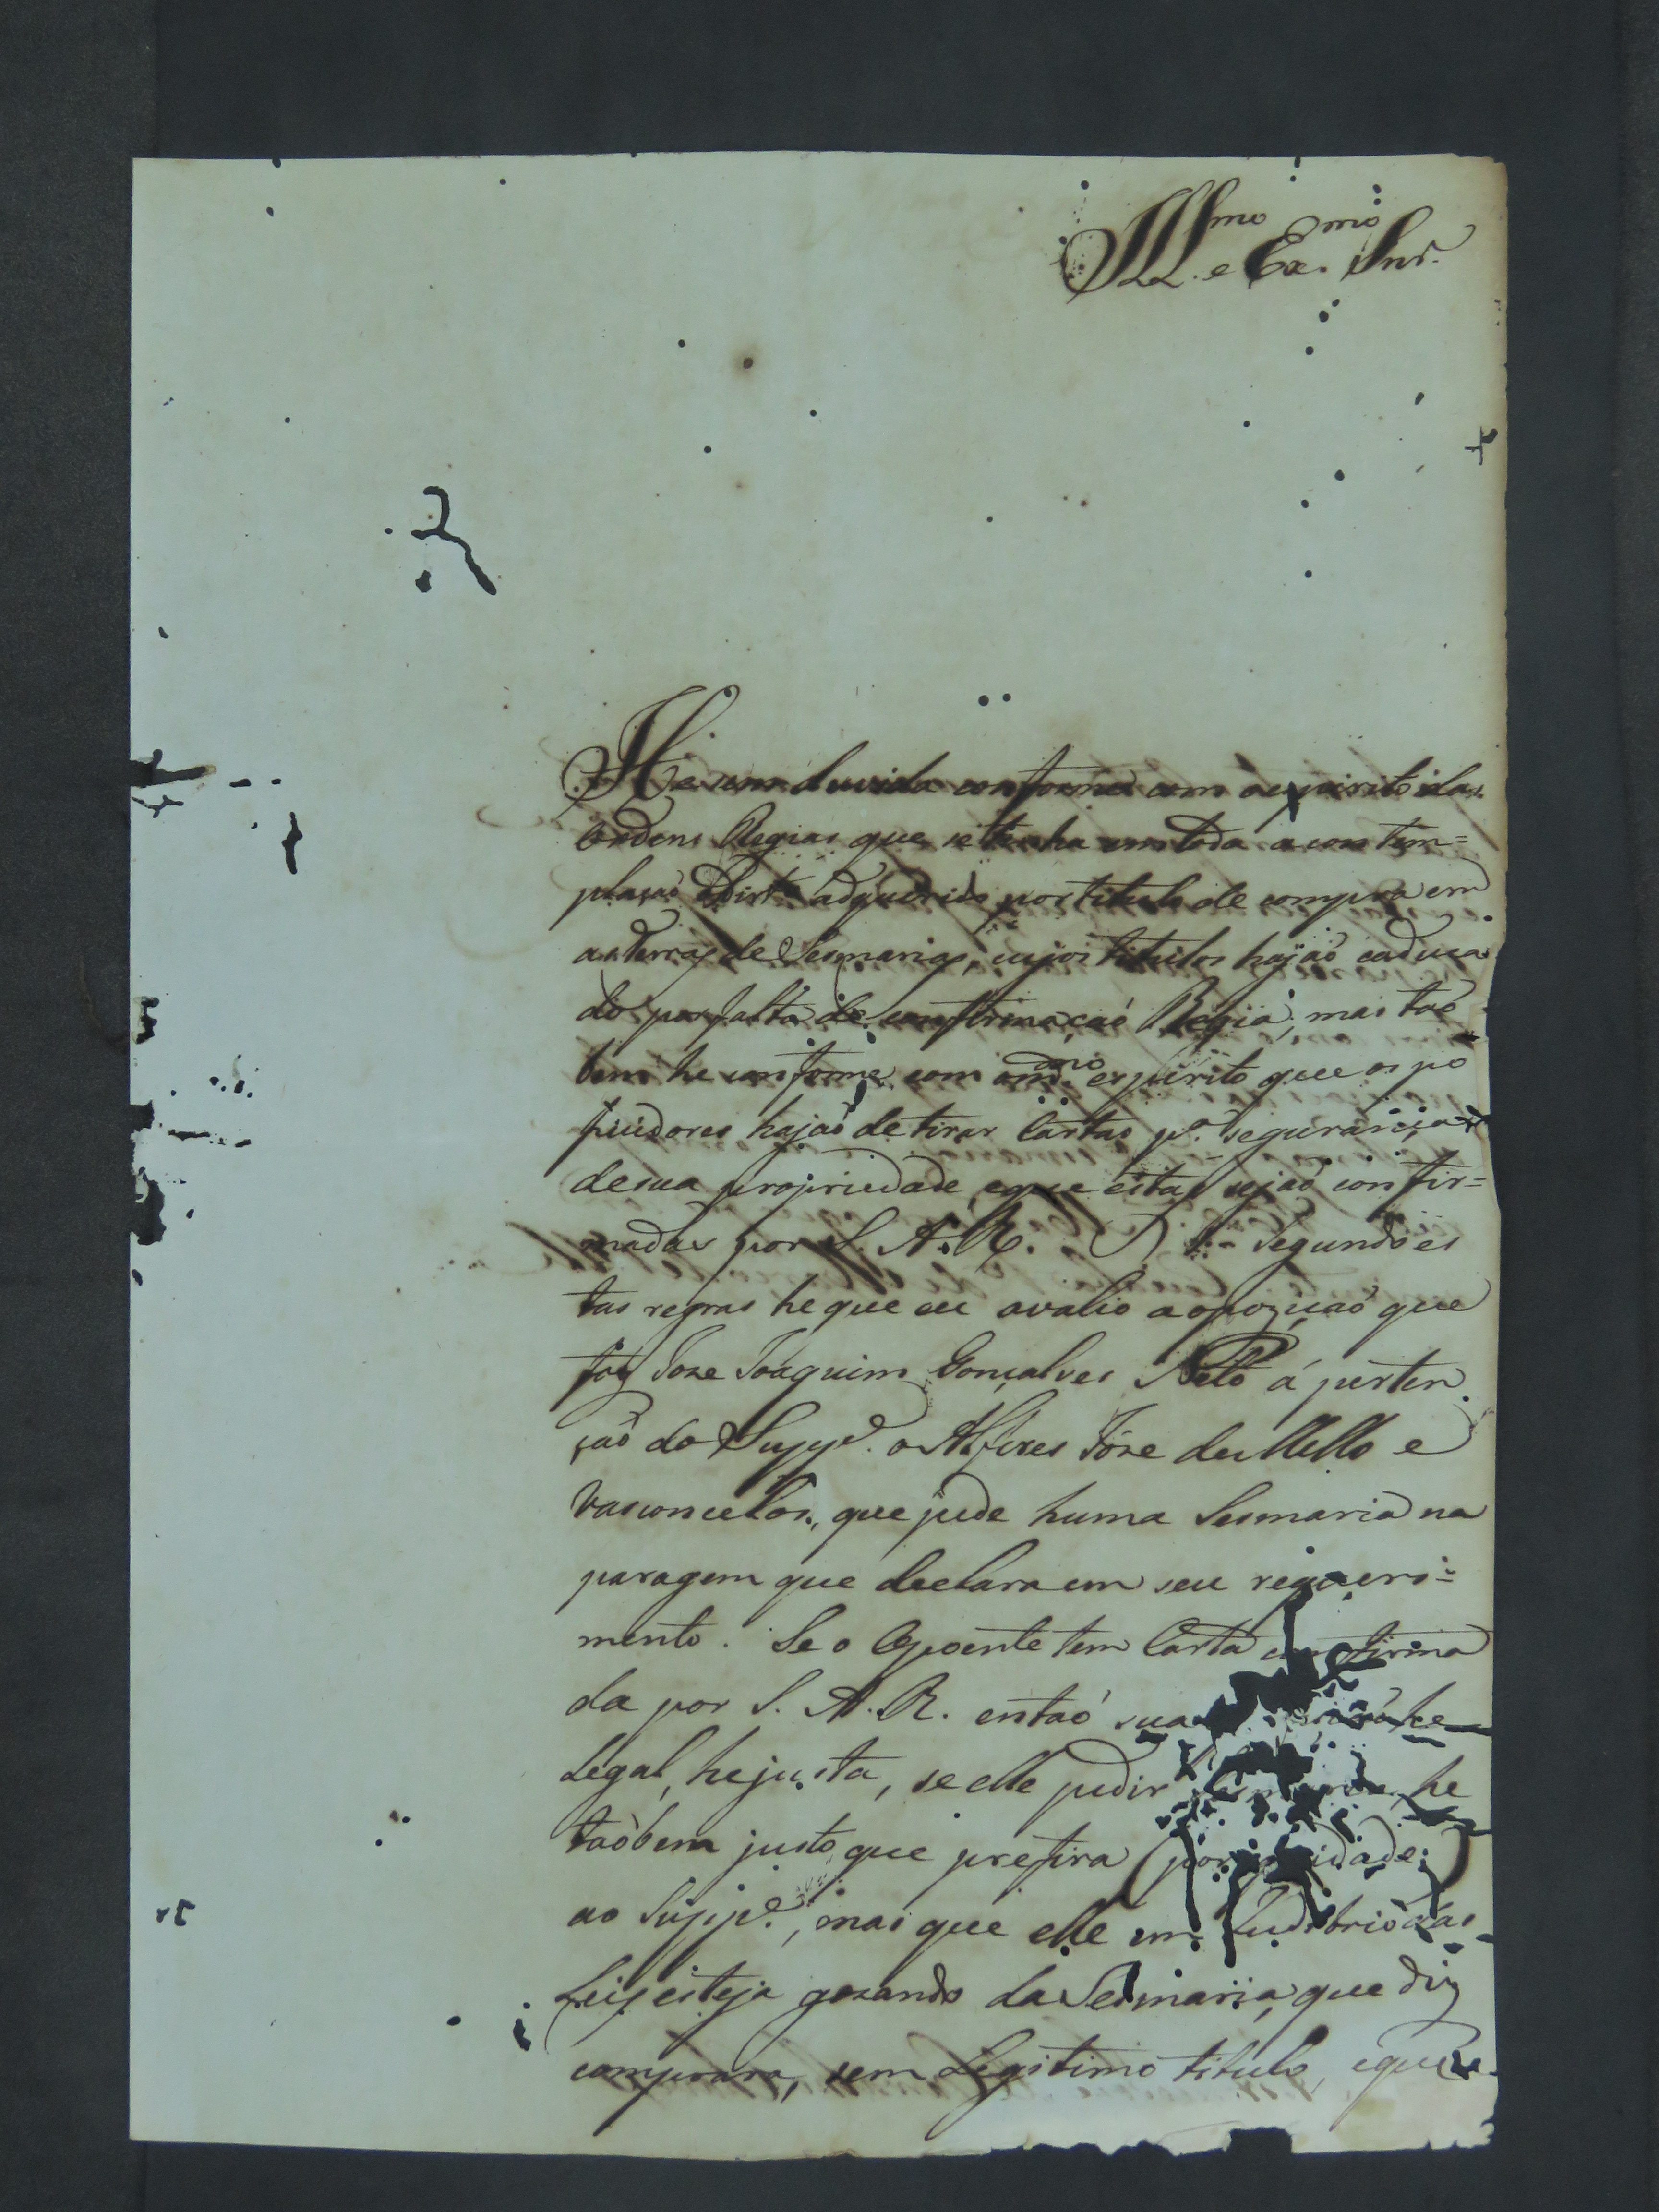 Ill.mo e Ex.mo Snr.
He sem duvida conforme com o espirito das
Ordens Regias que se tenha em toda a contem=
plaçaõ adquirido por titulo de compra em
as terras de Sesmarias, cujos titulos hajaõ caduca
do por falta de confirmaçaõ Regia, mas taõ
bem he conforme com o m.mo espirito que os po
suidores hajaõ de tirar Cartas p.a segurancia
de sua propriedade, e que estas sejaõ confir=
madas por S. A. R. Segundo es
tas regras he que eu avalio a opoziçaõ que
faz Joze Joaquim Gonçalves Neto á perten
çaõ do Supp.e o Alferes Joze de Mello e
Vasconcelos, que pede huma Sesmaria na
paragem que declara em seu requeri=
mento. Se o Opoente tem Carta confirma
da por S. A. R. entaõ sua he
Legal, he justa, se elle pedir Sesmaria, he
taõbem justo que prefira (por idade)
ao Supp.e, mas que elle em Ludibrio das
Leis esteja gozando da Sesmaria, que diz
comprara, sem Legitimo titulo, e que